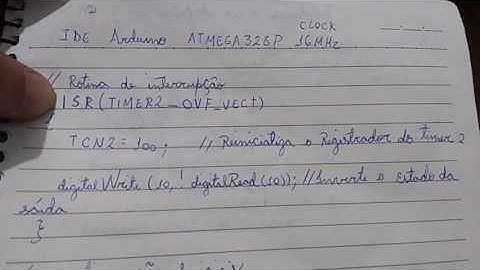 CLOCK
IDE Arduino ATMEGA328P 16MHz
// Rotina de interrupção
ISR(TIMER2_OVF_VECT)
{
TCN2=100; // Reinicializa o Registrador do timer 2
digitalWrite(10,!digitalRead(10)); //Inverte o estado da
saída
}